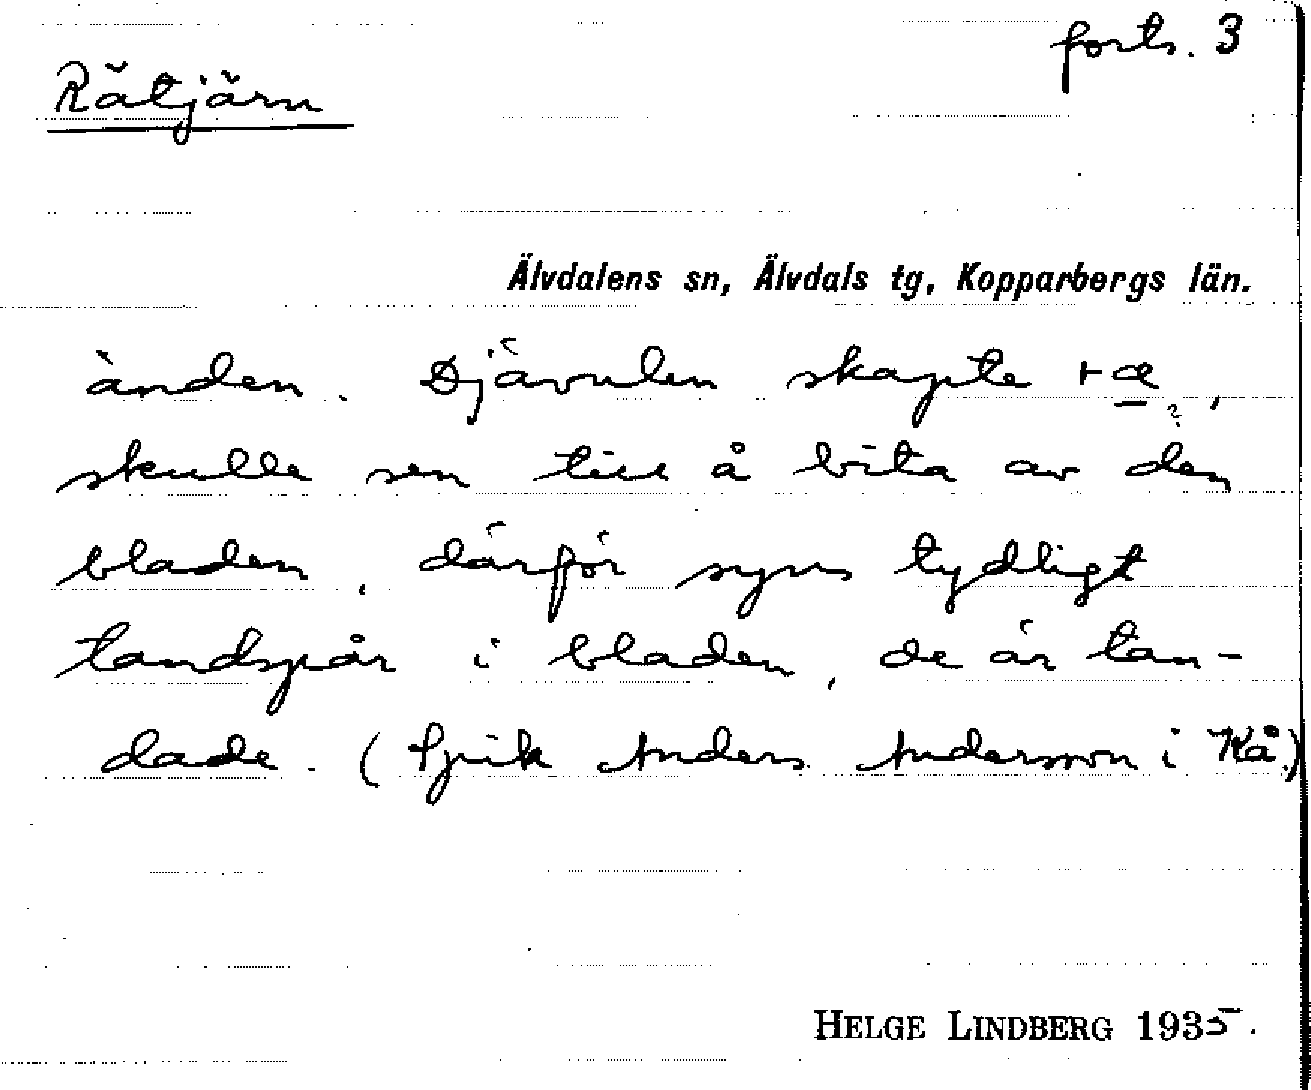 forts. 3
Rätjärn
Älvdalens sn, Älvdals tg, Kopparbergs län.
änden. Djävulen skapte ræ,
skulle sen till å bita av den ?
bladen, därför syns tydligt
tandspår i bladen, de är tan-
dade. (Spik Anders Andersson i Kå.)
HELGE LINDBERG 1935.